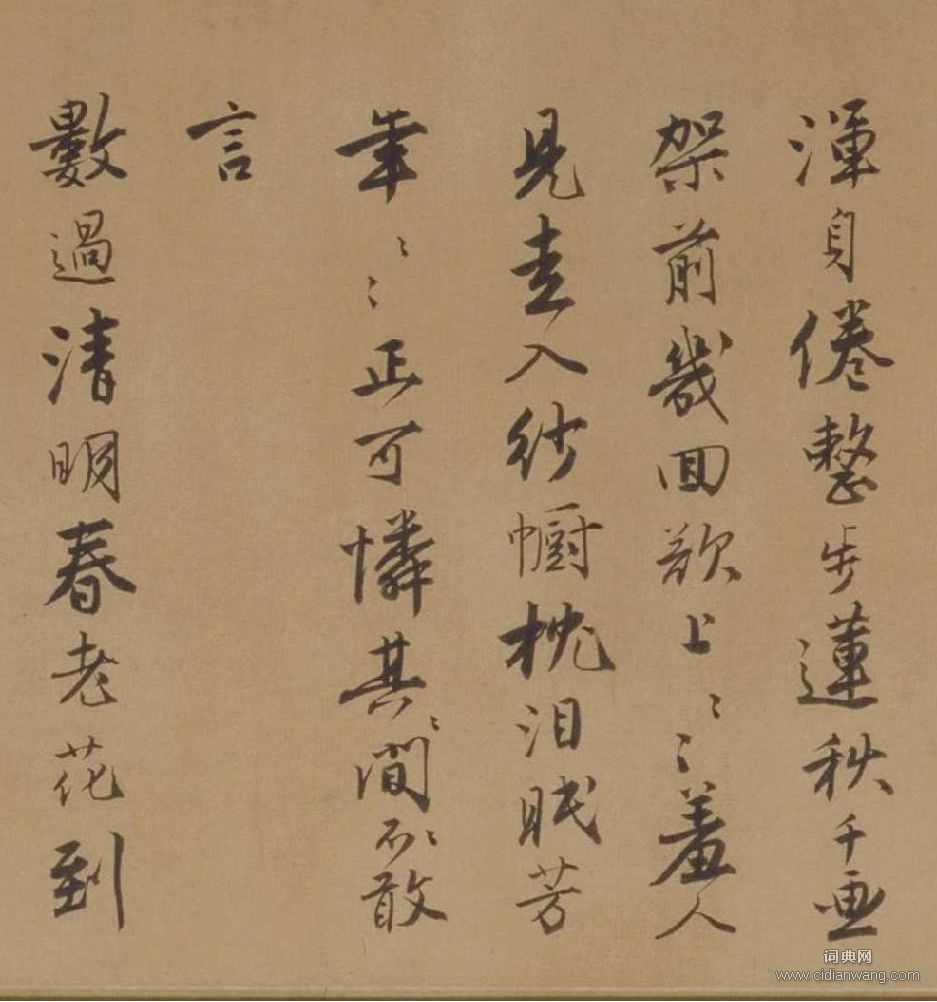 渾身倦整步蓮秋千画
架前幾回欲上〻〻羞人
見走入紗幮枕泪眠芳
年〻〻正可憐其〻間不〻敢
言
數過清明春老花到
词典网
www.cidianwang.com